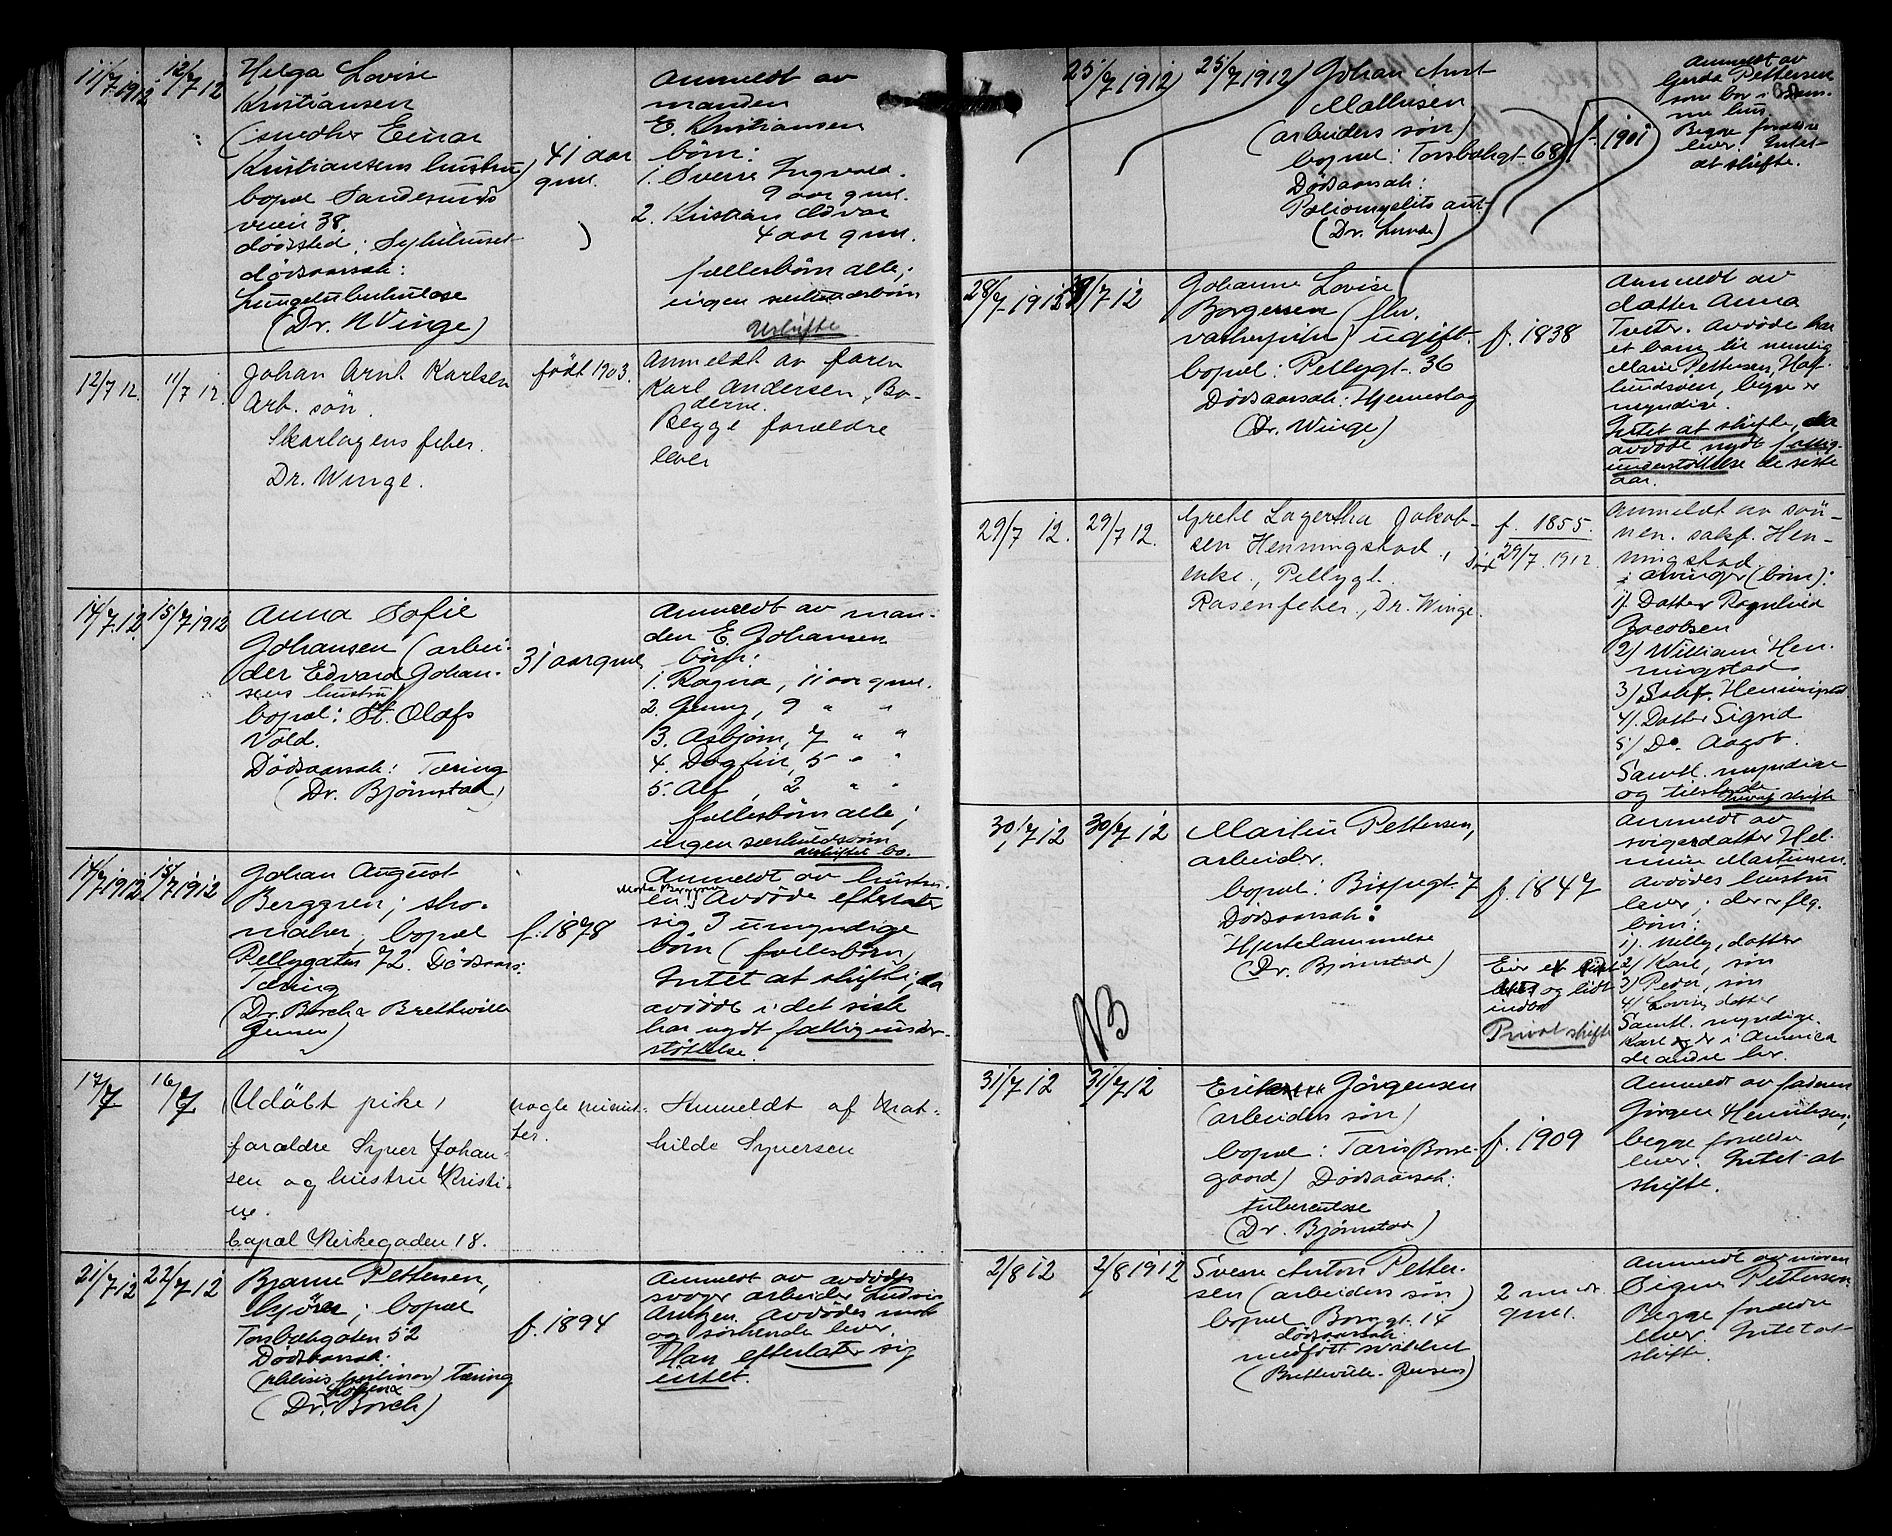 11/7 1912
12/7 12
Helga Lovise
Kristiansen
(smedker Einar
Kristiansens hustru)
bopæl Sandesunds
veien 38.
dödssted: Sykehuset
dödsaarsak:
Lungetuberkulose
(Dr. N Winge)
41 aar
gml.
Anmeldt av
manden
E. Kristiansen
börn:
1. Sverre Ingvald.
9 aar gml.
2. Kristian Odvar
4 aar gml.
fællesbörn alle;
ingen særkuldsbörn
Uskifte
12/7 12.
11/7 12.
Johan Arnt Karlsen
Arb. sön.
Skarlagensfeber.
Dr. Winge.
født 1903.
Anmeldt av faren
Karl Andersen, Bo-
derne.
Begge forældre
lever
14/7.12
15/7 1912
Anna Sofie
Johansen (arbei-
der Edvard Johan-
sens hustru)
bopæl: St. Olafs
Vold.
Dödsaarsak: Tæring
(Dr. Björnstad)
31 aar gml
Anmeldt av man-
den E. Johansen
börn:
1. Ragna, 11 aar gml.
2. Jenny, 9 " "
3. Asbjörn, 7 " "
4. Dagfin, 5 " "
5. Alf, 2 " "
fællesbörn alle;
ingen særkuldsbörn
uskiftet bo.
14/7 1912
15/7 1912
Johan August
Berggren; sko-
maker, bopæl
Pellygaten 72. Dödsaars:
Tæring
(Dr. Borch & Bretteville
Jensen)
f. 1878
Anmeldt av hustru-
en Avdöde efterlater
sig 3 umyndige
börn (fællesbörn)
Intet at skifte, da
avdöde i det siste
har nydt fattigunder-
støttelse.
17/7
16/7
Udöbt pike,
forældre Syver Johan-
sen og hustru Kristi-
ne.
Bopæl Kirkegaden 18.
nogle minut-
ter.
Anmeldt af Mat-
hilde Syversen
21/7 12
22/7 12
Bjarne Pettersen,
bopæl
Torsbækgaten 52
Dödsaarsak:
(phtisis pulmon) tæring
(Dr. Borch)
f. 1894
Anmeldt av avdødes
svoger arbeider Ludvig
Arntzen. Avdödes mor
og søskende lever.
Han efterlater sig
intet.
25/7 1912
25/7 1912
Johan Arnt
Mathisen
(arbeiders sön)
bopæl: Torsbækgt. 68
Dödsaarsak:
Poliomyelits aut-
(Dr. Lunde)
f. 1901
Anmeldt av
Gerda Pettersen
som bor i sam-
me hus
Begge forældre
lever. Intet
at skifte.
28/7 1912
31/7 12
Johanne Lovise
Borgersen (fhv.
vaskepike) ugift.
bopæl: Pellygt. 36
Dödsaarsak: Hjerneslag
(Dr. Winge)
f. 1838
Anmeldt av
datter Anna
Tveter. Avdöde har
et barn til nemlig
Marie Pettersen, Haf-
lundsöen, begge er
myndige.
Intet at skifte, da
avdöde nydt fattig-
understöttelse de siste
aar.
29/7 12.
29/7 12.
Grete Lagertha Jakob-
sen Henningstad,
enke, Pellygt.
Rosenfeber, Dr. Winge.
f. 1855.
Död 29/7. 1912.
Anmeldt av sön-
nen. sakf. Hen-
ningstad
arvinger (börn):
1). Datter Ragnhild
Jacobsen
2) William Hen-
ningstad
3) Sakf. Henningstad
4). Datter Sigrid
5) Do. Aagot.
Samtl. myndige
og tilstede
Privat skifte
30/7 12
30/7 12
Martin Pettersen,
arbeider.
bopæl: Bispegt. 7
Dödsaarsak:
Hjertelammelse
(Dr. Björnstad)
NB
f. 1847
Eier et lidet
og lidt
indbo
Privat skifte
Anmeldt av
svigerdatter Hel-
mine Martinsen
Avdödes hustru
lever; der er flg.
börn:
1). Milly, datter
2) Karl, sön
3) Peder, sön
4) Lovise, datter
Samtl. myndige
Karl er i Amerika
de andre her.
31/7 12
31/7 12
Jörgensen
(arbeiders sön)
bopæl: Taris (Borre-
gaard) Dödsaarsak:
tuberculose
(Dr. Björnstad)
f. 1909
Anmeldt av faderen
Jörgen Henriksen;
begge forældre
lever. Intet at
skifte.
2/8 12
2/8 1912
Sverre Anton Petter-
sen (arbeiders sön)
bopæl Borggt. 14
dödsaarsak:
medfött svakhet
(Bretteville-Jensen)
2 mndr.
gml.
Anmeldt av moren
Signe Pettersen.
Begge forældre
lever. Intet at
skifte.